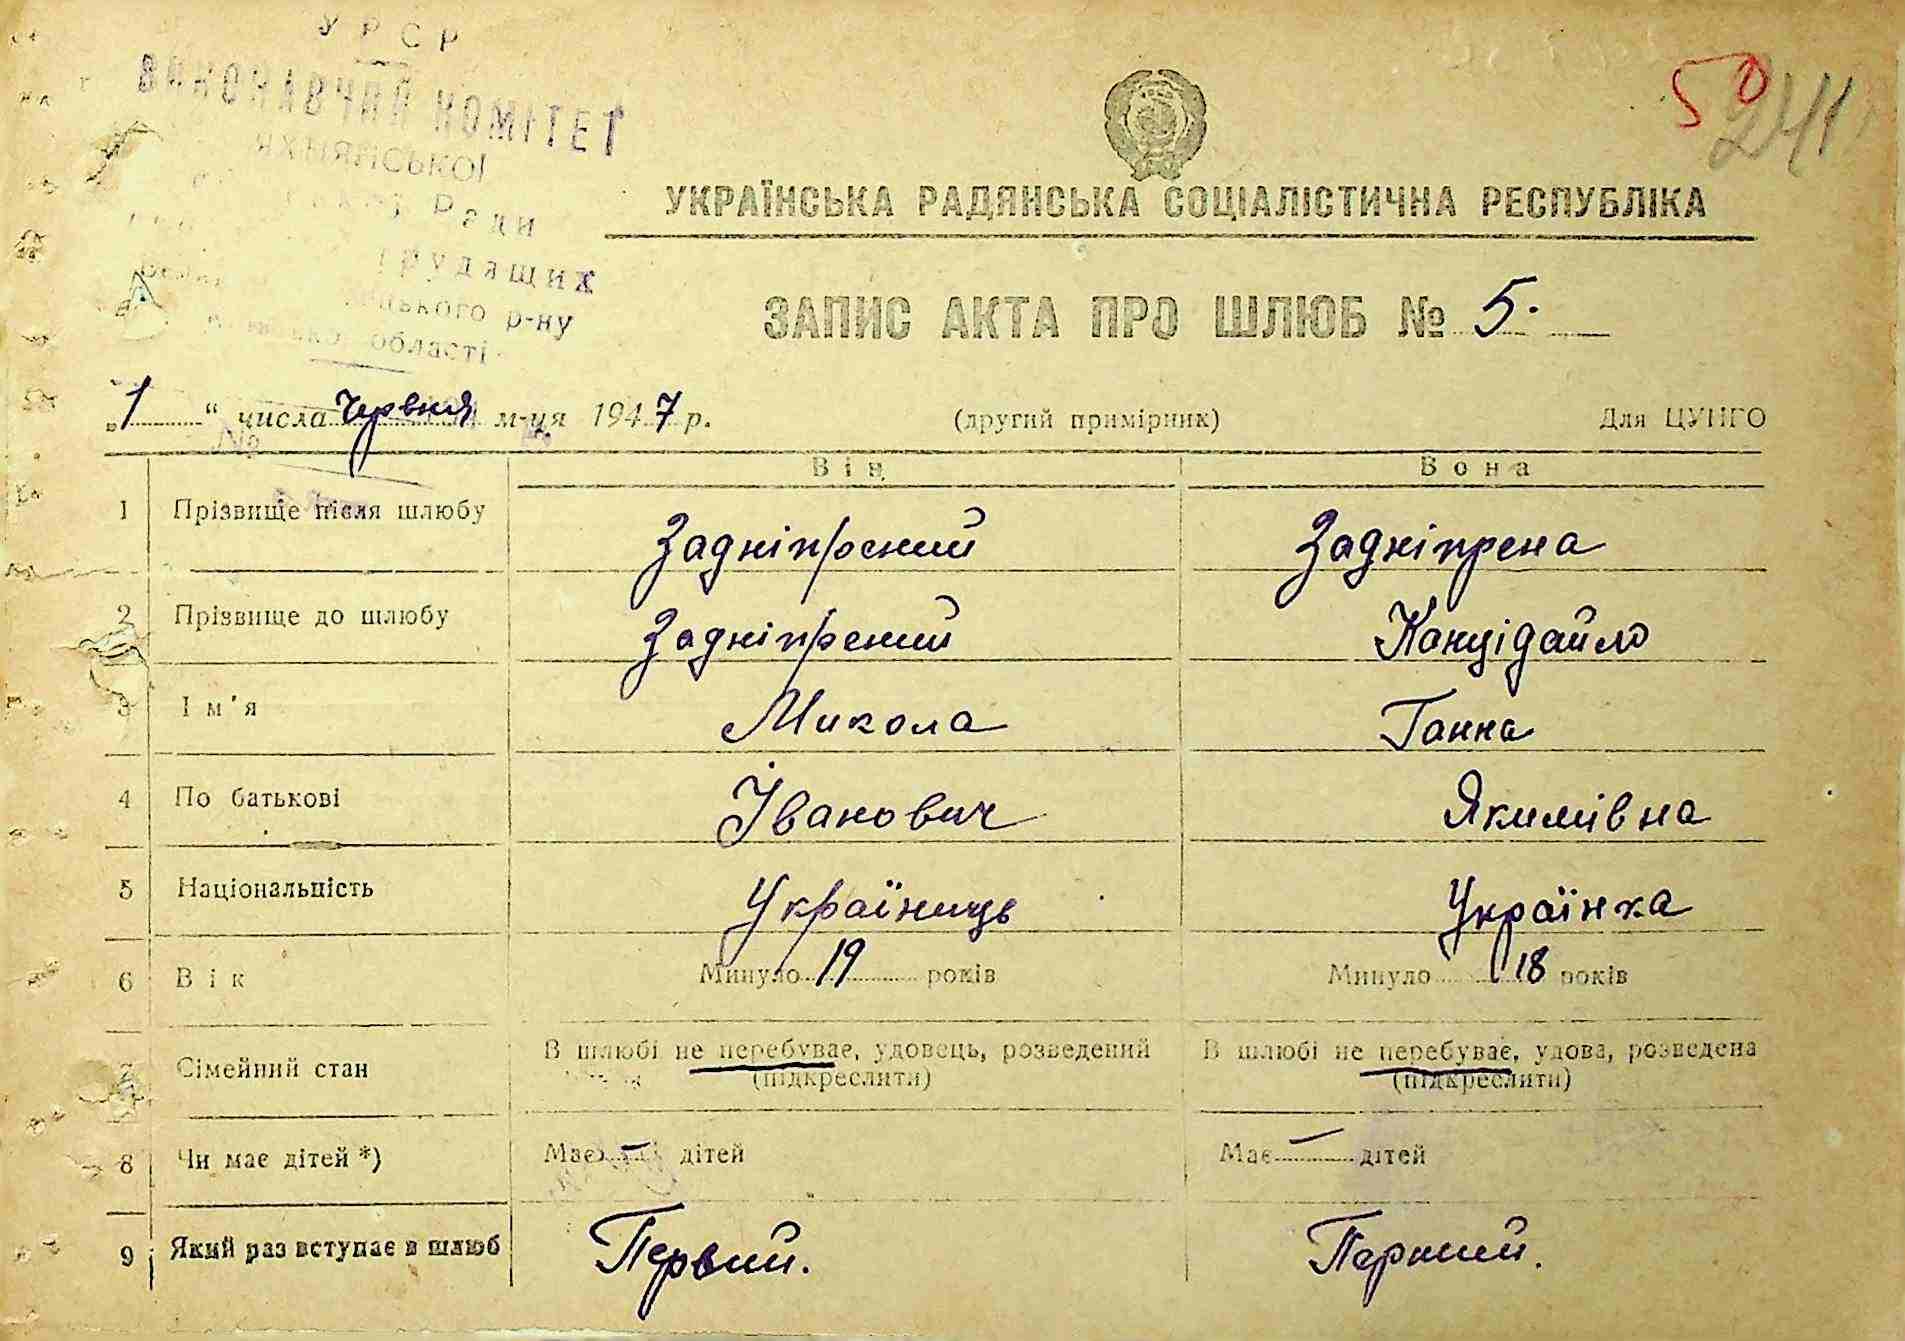 УРСР
ВИКОНАВЧИЙ КОМІТЕТ
ЯХНЯНСЬКОЇ
Ради
трудящих
р-ну
області
50
241
УКРАЇНСЬКА РАДЯНСЬКА СОЦІАЛІСТИЧНА РЕСПУБЛІКА
ЗАПИС АКТА ПРО ШЛЮБ № 5.
„1“ числа червня м-ця 1947 р. (другий примірник) Для ЦУНГО
№
Він Вона
1 Прізвище після шлюбу Задніпрений Задніпрена
2 Прізвище до шлюбу Задніпрений Канцідайло
3 Ім'я Микола Ганна
4 По батькові Іванович Якимівна
5 Національність Україниць Українка
6 Вік Минуло 19 років Минуло 18 років
7 Сімейний стан В шлюбі не перебуває, удовець, розведений В шлюбі не перебуває, удова, розведена
(підкреслити) (підкреслити)
8 Чи має дітей *) Має — дітей Має — дітей
9 Який раз вступає в шлюб Первий. Перший.